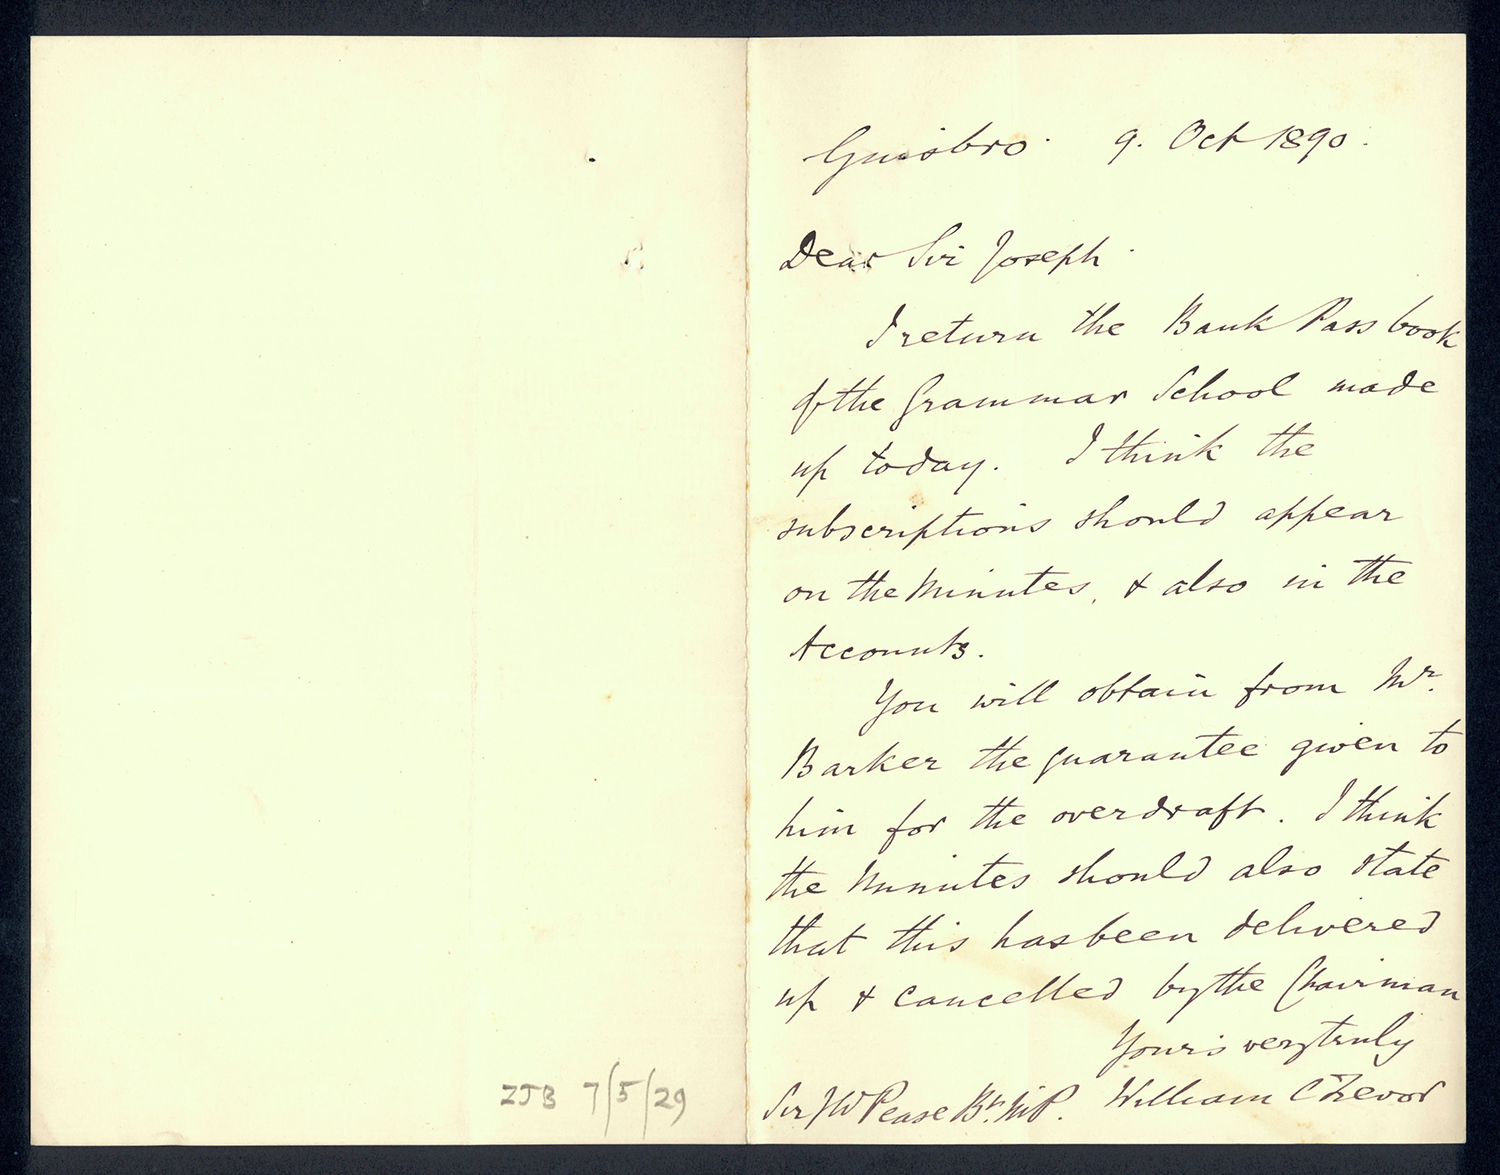 Guisbro. 9. Oct 1890.
Dear Sir Joseph.
I return the Bank Pass book
of the Grammar School made
up today. I think the
subscriptions should appear
on the Minutes, & also in the
Accounts.
You will obtain from Mr.
Barker the guarantee given to
him for the overdraft. I think
the Minutes should also state
that this has been delivered
up & cancelled by the Chairman
Yours very truly
William C Trevor
Sir JW Pease Bt. MP.
ZJB 7/5/29